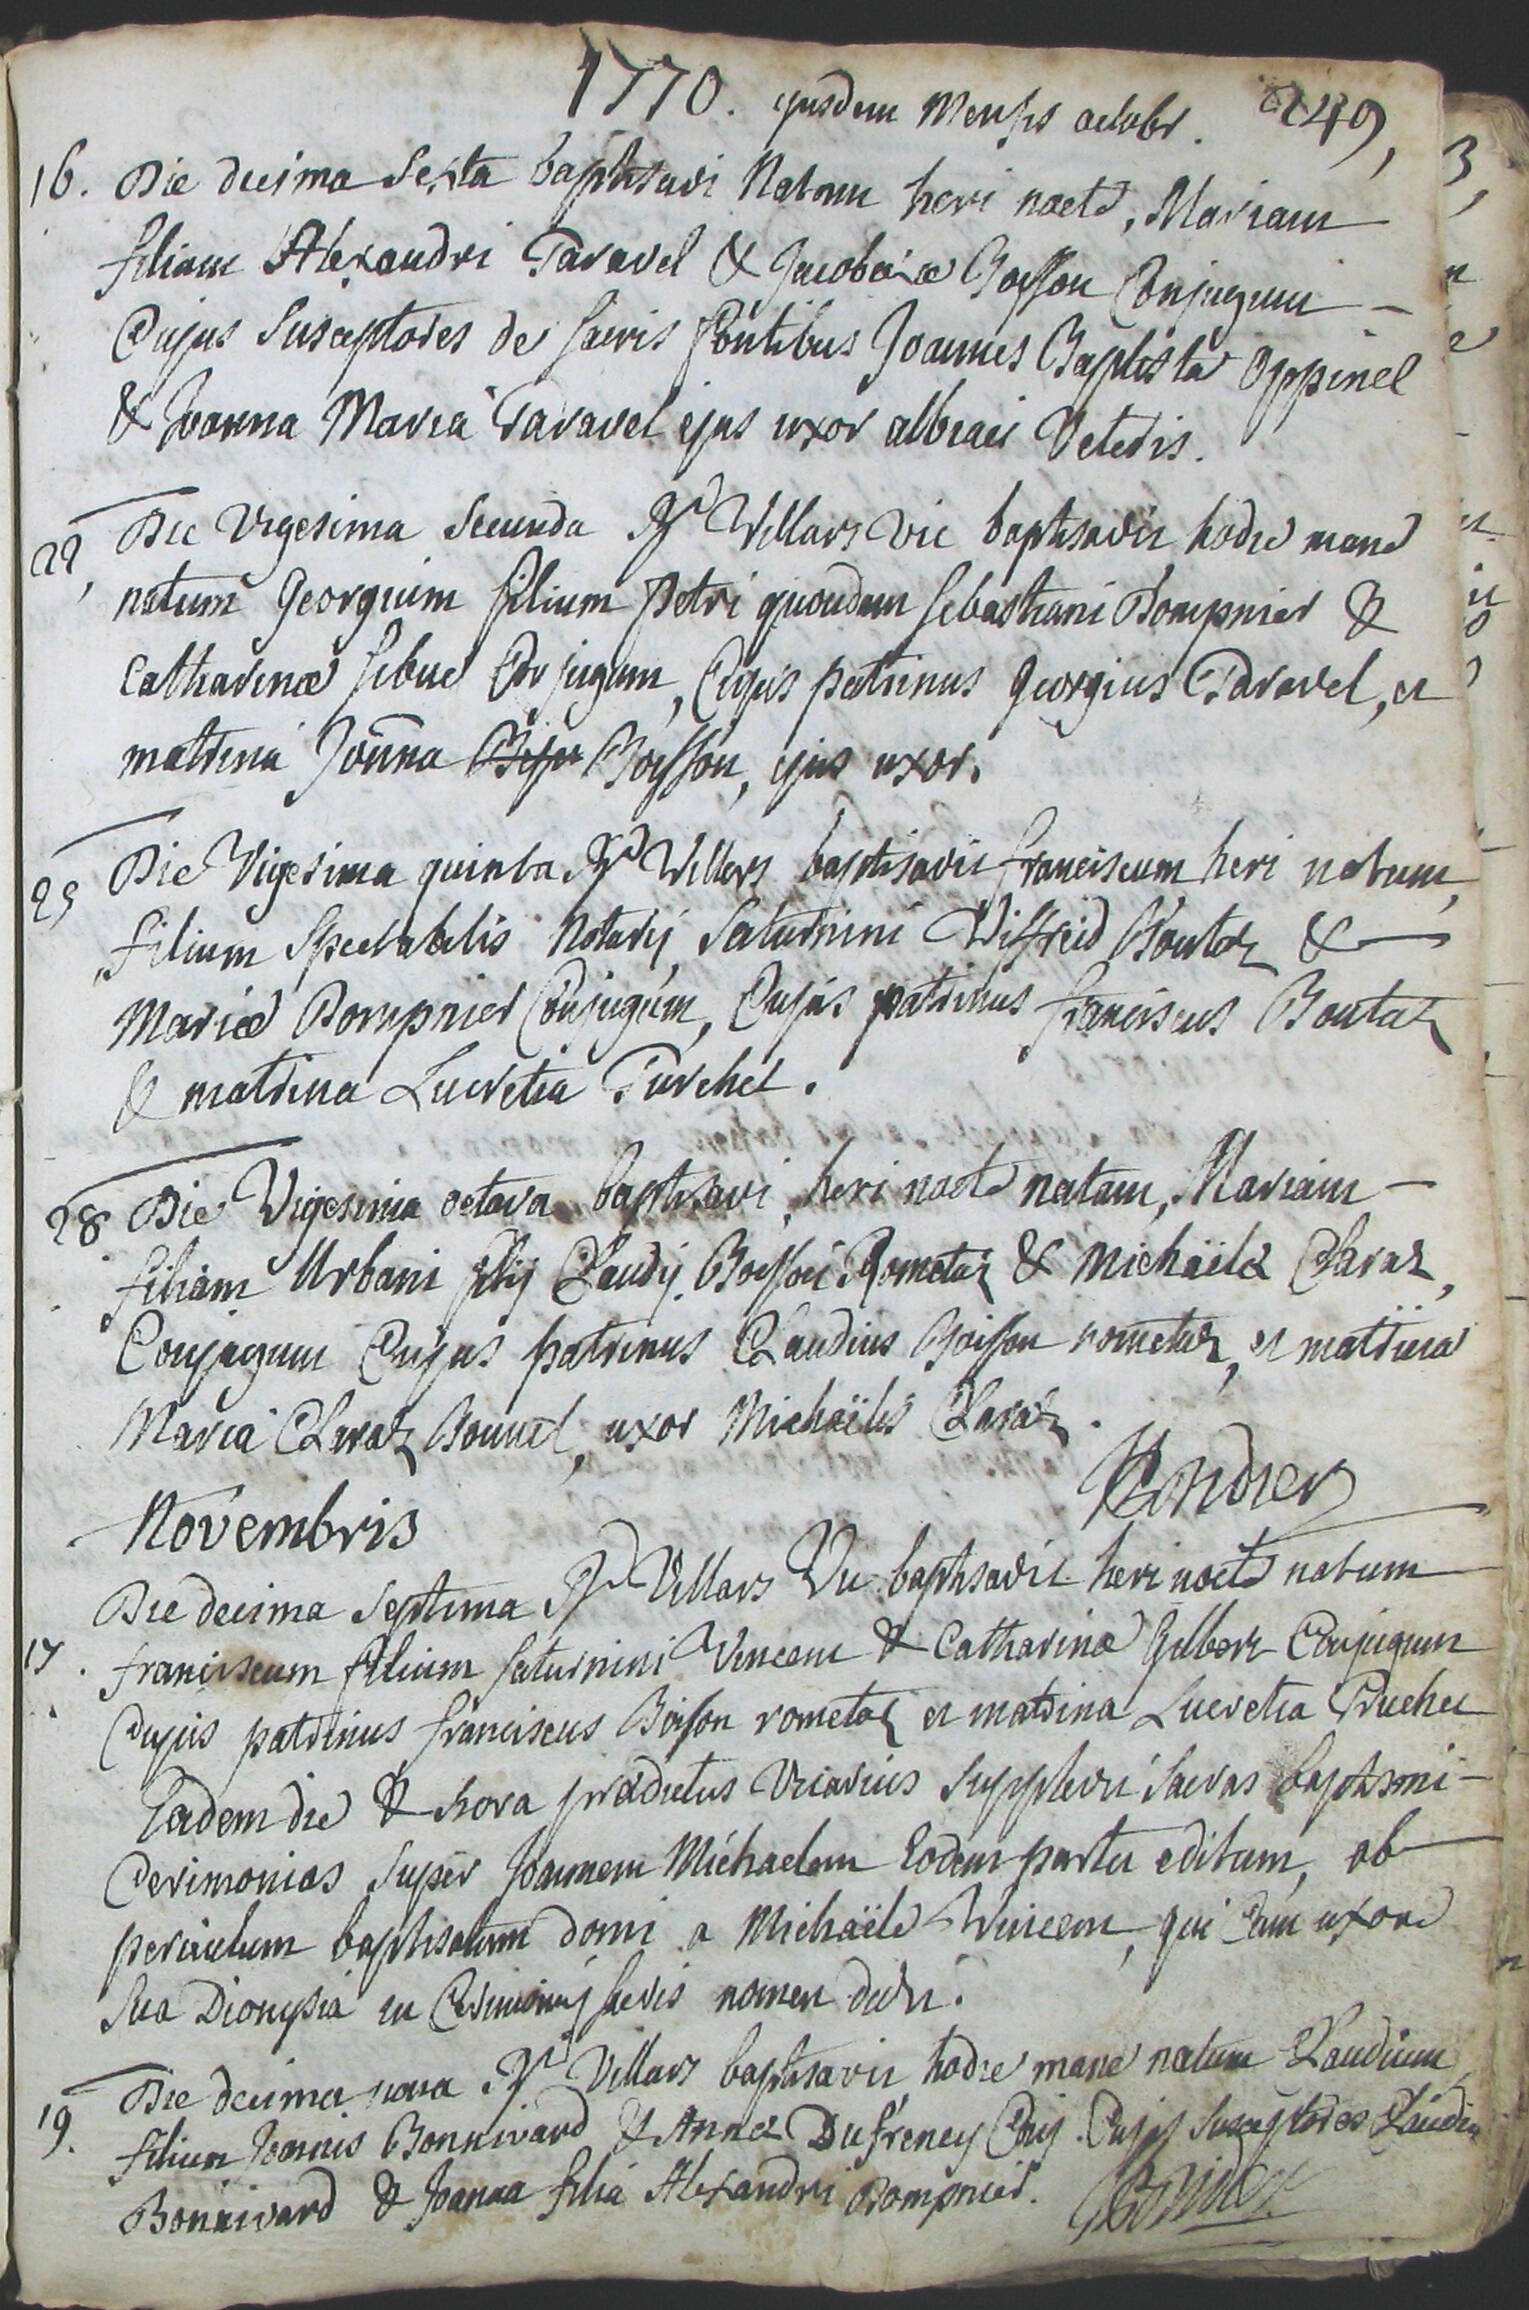 1770. ejusdem Mensis octobr. 249,
16. Die decima Sexta baptisavi Natam heri nocte, Mariam
filiam Alexandri Taravel & Jacobææ Boisson Conjugum
Cujus Susceptores de sacris fontibus Joannes Baptista Oppinel
& Joanna Maria Taravel ejus uxor albiaci Veteris.
22, Die Vigesima Secunda Rd Villars vic baptisavit hodie mane
natum Georgium filium Petri quondam sebastiani Bompnier &
Catharinæ sibue Conjugum, Cujus patrinus Georgius Taravel, et
matrina Joanna Boisson, ejus uxor.
25 Die Vigesima quinta Rd Villars baptisavit franciscum heri natum,
filium Spectabilis Notarij Saturnini Wilfrid Boutaz &
Mariæ Bompnier Conjugum, Cujus patrinus franciscus Boutaz
& matrina Lucretia Turchet.
28 Die Vigesima octava baptisavi, heri nocte natam, Mariam
filiam Urbani filij Claudij Boisson Rometaz & Michaëlæ Claraz,
Conjugum Cujus patrinus Claudius Boisson rometaz, et matrina
Maria Claraz Bonnel, uxor Michaëlis Claraz.
Novembris
Die decima Septima Rd Villars Vic baptisavit heri nocte natum
17. franciscum filium saturnini Vincent & Catharinæ Gilbert Conjugum
Cujus patrinus franciscus Boisson rometaz et matrina Lucretia Truchet
Eadem die & hora prædictus Vicarius Supplevit Sacras baptismi
Cerimonias Super Joannem Michaelem Eodem partu editum, ob
periculum baptisatum domi a Michaële Vincent, qui cum uxore
sua Dionysia in Cerimonijs sacris nomen dedit.
19. Die decima nona Rd Villars baptisavit hodie mane natum Claudium
filium Joannis Bonnivard & Annæ Dufreney Conj. Cujus Susceptores Claudius
Bonnivard & Joanna filia Alexandri Bompnier.